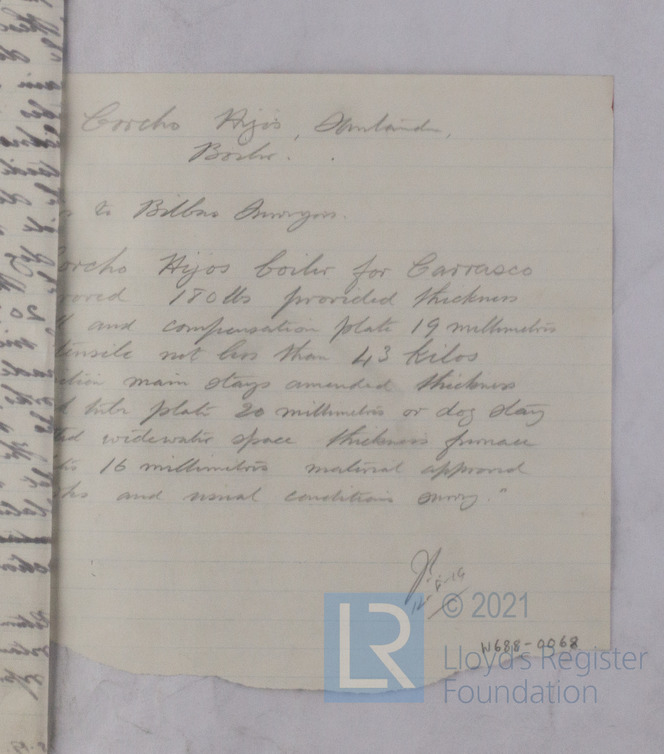 Corcho Hijos, Santander,
Boiler.
to Bilbao Surveyors.
orcho Hijos boiler for Carrasco
roved 180 lbs provided thickness
and compensation plate 19 millimetres
tensile not less than 43 kilos
ction main stays amended thickness
tube plate 20 millimetres or dog stay
ted widewater space thickness furnace
16 millimetres material approved
ks and usual conditions survey."
W688-0068
LR
© 2021
Lloyd's Register
Foundation